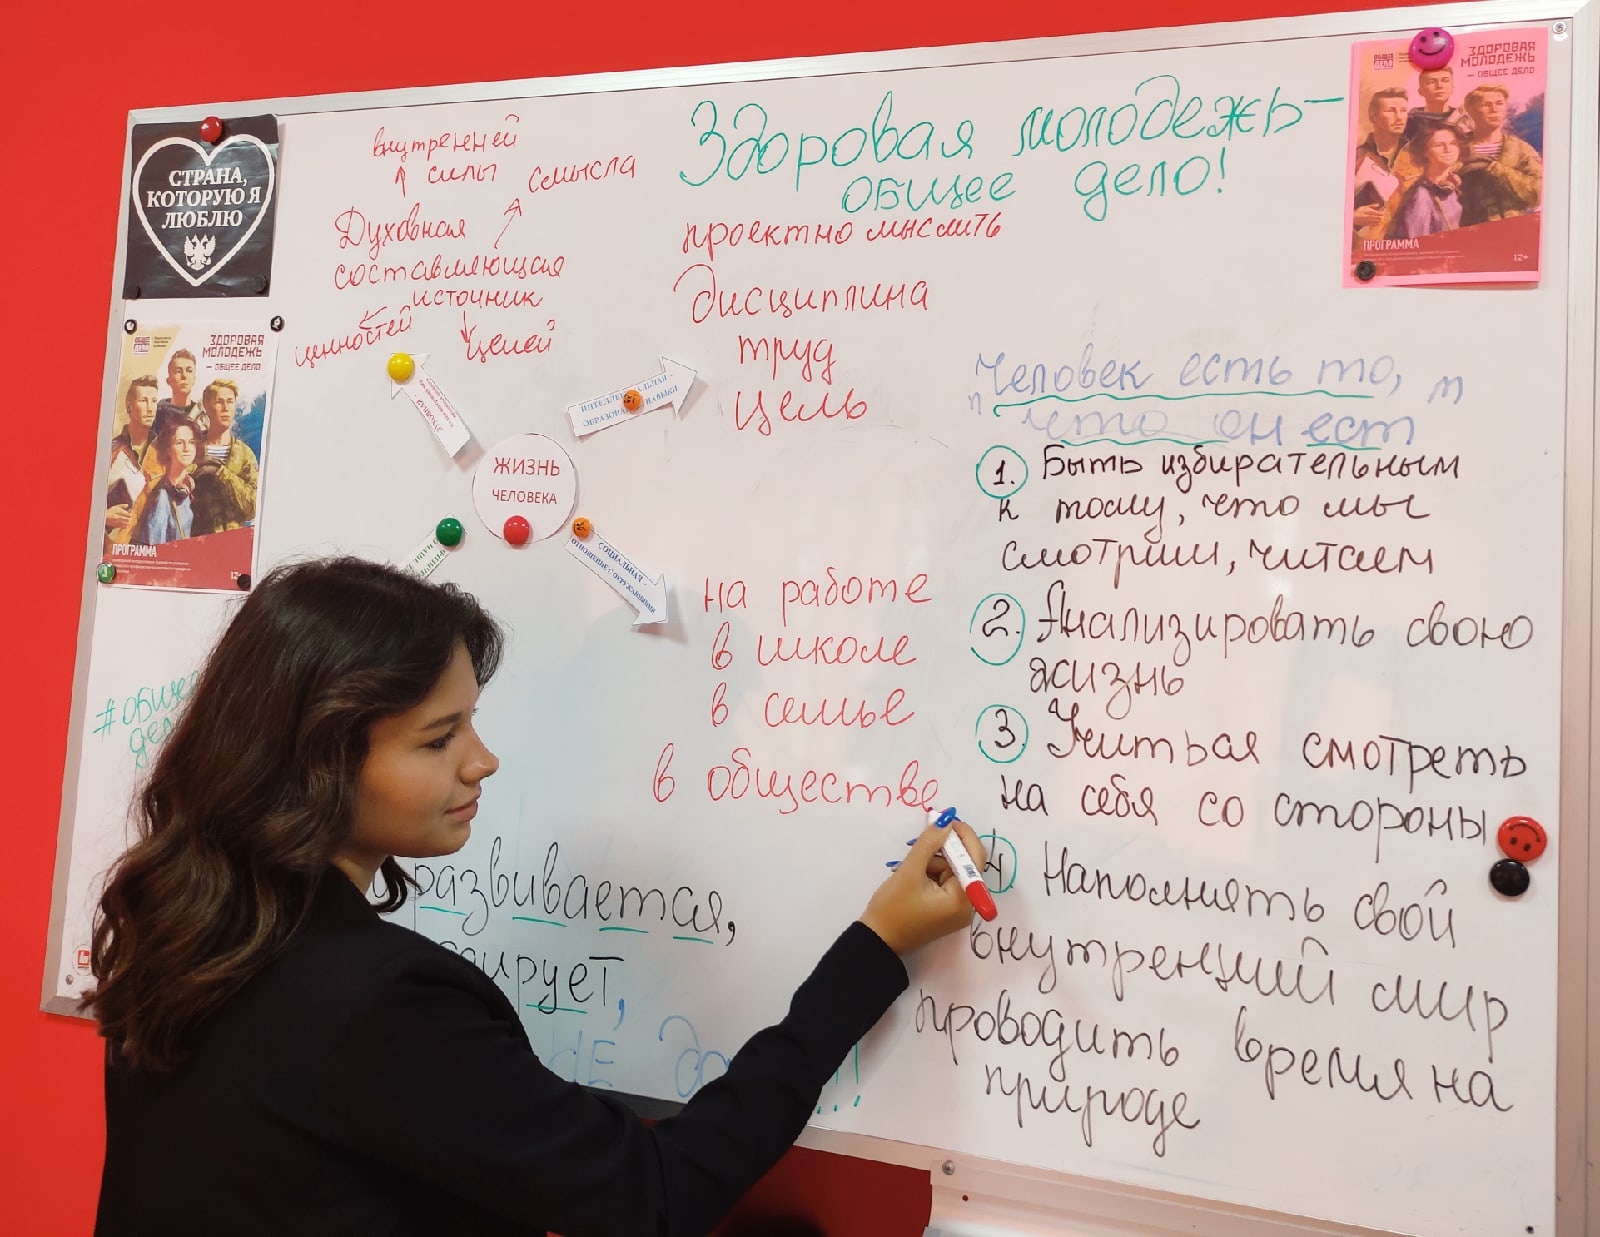 СТРАНА,
КОТОРУЮ Я
ЛЮБЛЮ
внутренней
силы
смысла
Духовная
составляющая
источник
ценностей
целей
Здоровая молодежь —
общее дело!
ЗДОРОВАЯ
МОЛОДЕЖЬ
— ОБЩЕЕ ДЕЛО
ПРОГРАММА
12+
ЗДОРОВАЯ
МОЛОДЕЖЬ
— ОБЩЕЕ ДЕЛО
ПРОГРАММА
12+
проектно мыслить
дисциплина
труд
цель
ЖИЗНЬ
ЧЕЛОВЕКА
СОЦИАЛЬНАЯ -
ОТНОШЕНИЕ С ОКРУЖАЮЩИМИ
на работе
в школе
в семье
в обществе
Человек есть то,
что он ест
1. Быть избирательным
к тому, что мы
смотрим, читаем
2. Анализировать свою
жизнь
3. Учиться смотреть
на себя со стороны
4. Наполнять свой
внутренний мир
проводить время на
природе
развивается,